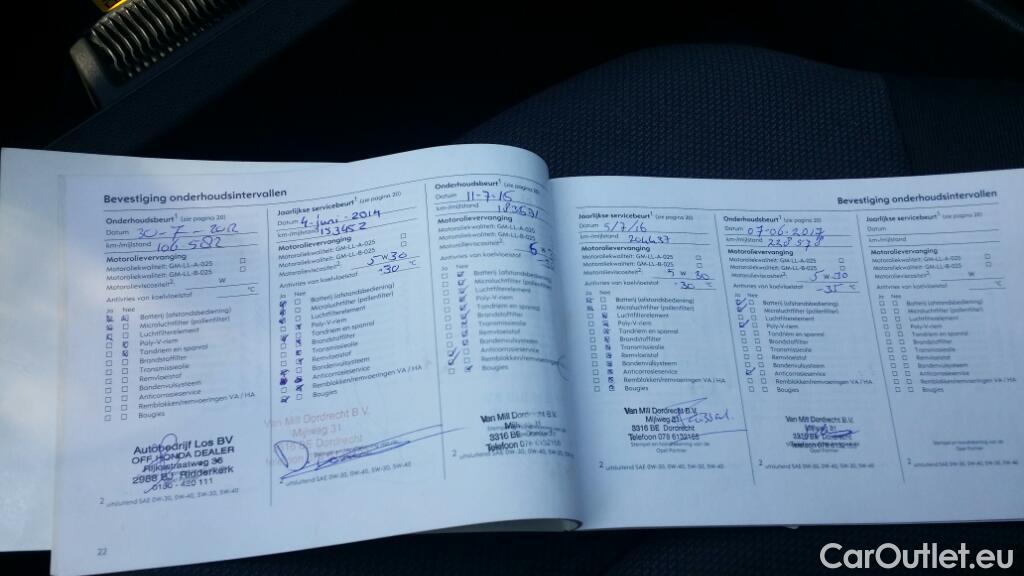 Bevestiging onderhoudsintervallen
Onderhoudsbeurt¹ (zie pagina 20)
Datum 30-7-2012
km-/mijlstand 106 582
Motorolievervanging
Motoroliekwaliteit: GM-LL-A-025
Motoroliekwaliteit: GM-LL-B-025
Motorolieviscositeit². W
Antivries van koelvloeistof °C
Ja Nee
Batterij (afstandsbediening)
Microluchtfilter (pollenfilter)
Luchtfilterelement
Poly-V-riem
Tandriem en spanrol
Brandstoffilter
Transmissieolie
Remvloeistof
Bandenvulsysteem
Anticorrosieservice
Remblokken/remvoeringen VA / HA
Bougies
Autobedrijf Los BV
OFF. HONDA DEALER
Rijksstraatweg 36
2988 BJ Ridderkerk
0180 - 420 111
2 uitsluitend SAE 0W-30, 0W-40, 5W-30, 5W-40
22
Jaarlijkse servicebeurt¹ (zie pagina 20)
Datum 4-juni-2014
km-/mijlstand 153452
Motorolievervanging
Motoroliekwaliteit: GM-LL-A-025
Motoroliekwaliteit: GM-LL-B-025
Motorolieviscositeit². 5 W 30
Antivries van koelvloeistof -30 °C
Ja Nee
Batterij (afstandsbediening)
Microluchtfilter (pollenfilter)
Luchtfilterelement
Poly-V-riem
Tandriem en spanrol
Brandstoffilter
Transmissieolie
Remvloeistof
Bandenvulsysteem
Anticorrosieservice
Remblokken/remvoeringen VA / HA
Bougies
Van Mill Dordrecht B.V.
Mijlweg 31
Dordrecht
2 uitsluitend SAE 0W-30, 0W-40, 5W-30, 5W-40
Onderhoudsbeurt¹ (zie pagina 20)
Datum 11-7-15
km-/mijlstand
Motorolievervanging
Motoroliekwaliteit: GM-LL-A-025
Motoroliekwaliteit: GM-LL-B-025
Motorolieviscositeit².
Antivries van koelvloeistof
Ja Nee
Batterij (afstandsbediening)
Microluchtfilter (pollenfilter)
Luchtfilterelement
Poly-V-riem
Tandriem en spanrol
Brandstoffilter
Transmissieolie
Remvloeistof
Bandenvulsysteem
Anticorrosieservice
Remblokken/remvoeringen
Bougies
Van Mill Dordrecht B.V.
31
3316 BE Dordrecht
Telefoon 078 6132155
2 uitsluitend SAE 0W-30, 0W-40, 5W-30, 5W-40
Bevestiging onderhoudsintervallen
Jaarlijkse servicebeurt¹ (zie pagina 20)
Datum 5/7/16
km-/mijlstand 204437
Motorolievervanging
Motoroliekwaliteit: GM-LL-A-025
Motoroliekwaliteit: GM-LL-B-025
Motorolieviscositeit². 5 W 30
Antivries van koelvloeistof -30 °C
Ja Nee
Batterij (afstandsbediening)
Microluchtfilter (pollenfilter)
Luchtfilterelement
Poly-V-riem
Tandriem en spanrol
Brandstoffilter
Transmissieolie
Remvloeistof
Bandenvulsysteem
Anticorrosieservice
Remblokken/remvoeringen VA / HA
Bougies
Van Mill Dordrecht B.V.
Mijlweg 31
3316 BE Dordrecht
Telefoon 078 6132155
Opel Partner
2 uitsluitend SAE 0W-30, 0W-40, 5W-30, 5W-40
Onderhoudsbeurt¹ (zie pagina 20)
Datum 07-06-2017
km-/mijlstand 228578
Motorolievervanging
Motoroliekwaliteit: GM-LL-A-025
Motoroliekwaliteit: GM-LL-B-025
Motorolieviscositeit². 5 W 30
Antivries van koelvloeistof -35 °C
Ja Nee
Batterij (afstandsbediening)
Microluchtfilter (pollenfilter)
Luchtfilterelement
Poly-V-riem
Tandriem en spanrol
Brandstoffilter
Transmissieolie
Remvloeistof
Bandenvulsysteem
Anticorrosieservice
Remblokken/remvoeringen VA / HA
Bougies
Van Mill Dordrecht B.V.
Mijlweg 31
3316 BE Dordrecht
Telefoon 078 6132155
Opel Partner
2 uitsluitend SAE 0W-30, 0W-40, 5W-30, 5W-40
Jaarlijkse servicebeurt¹ (zie pagina 20)
Datum
km-/mijlstand
Motorolievervanging
Motoroliekwaliteit: GM-LL-A-025
Motoroliekwaliteit: GM-LL-B-025
Motorolieviscositeit². W
Antivries van koelvloeistof °C
Ja Nee
Batterij (afstandsbediening)
Microluchtfilter (pollenfilter)
Luchtfilterelement
Poly-V-riem
Tandriem en spanrol
Brandstoffilter
Transmissieolie
Remvloeistof
Bandenvulsysteem
Anticorrosieservice
Remblokken/remvoeringen VA / HA
Bougies
Stempel en handtekening van de
Opel Partner
2 uitsluitend SAE 0W-30, 0W-40, 5W-30, 5W-40
CarOutlet.eu